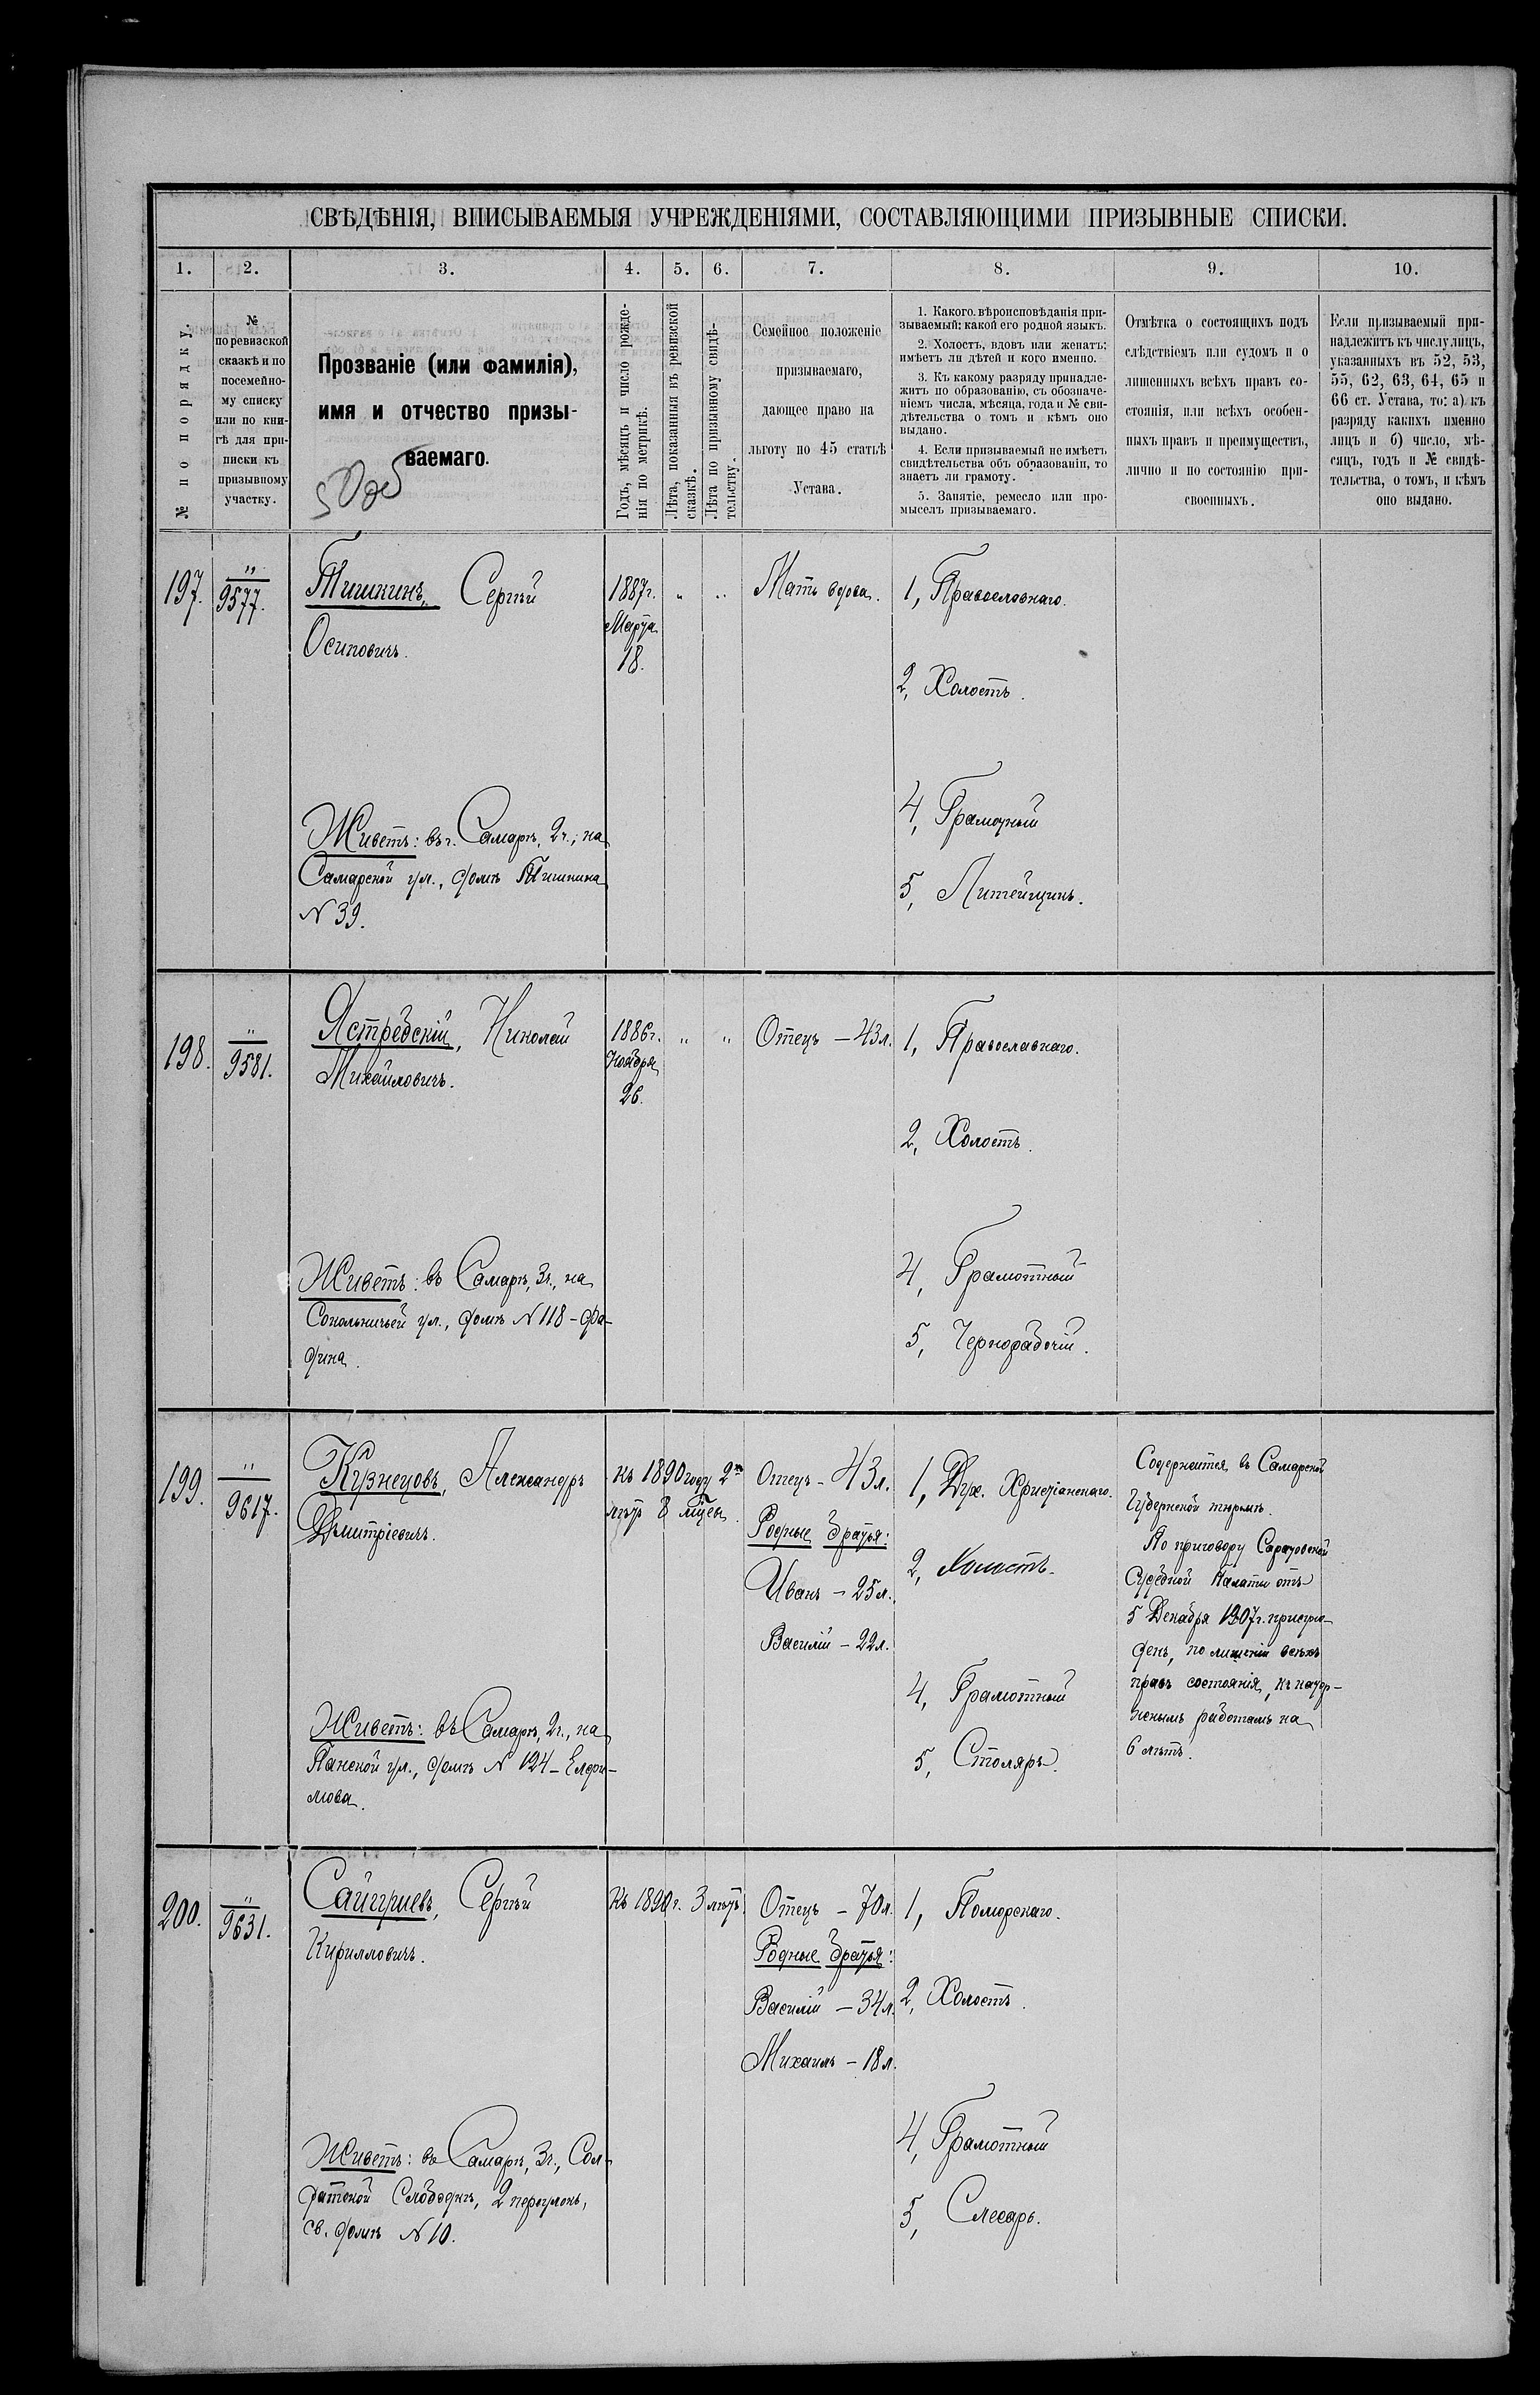 СВѢДѢНІЯ, ВПИСЫВАЕМЫЯ УЧРЕЖДЕНІЯМИ, СОСТАВЛЯЮЩИМИ ПРИЗЫВНЫЕ СПИСКИ.
1. 2. 3. 4. 5. 6. 7. 8. 9. 10.
№ по порядку.
№
по ревизской
сказкѣ и по
посемейно-
му списку
или по кни-
гѣ для при-
писки къ
призывному
участку.
Прозваніе (или фамилія),
имя и отчество призы-
ваемаго.
Годъ, мѣсяцъ и число рожде-
нія по метрикѣ.
Лѣта, показанныя въ ревизской
сказкѣ.
Лѣта по призывному свидѣ-
тельству.
Семейное положеніе
призываемаго,
дающее право на
льготу по 45 статьѣ
Устава.
1. Какого вѣроисповѣданія при-
зываемый; какой его родной языкъ.
2. Холостъ, вдовъ или женатъ;
имѣетъ ли дѣтей и кого именно.
3. Къ какому разряду принадле-
житъ по образованію, съ обозначе-
ніемъ числа, мѣсяца, года и № сви-
дѣтельства о томъ и кѣмъ оно
выдано.
4. Если призываемый не имѣетъ
свидѣтельства объ образованіи, то
знаетъ ли грамоту.
5. Занятіе, ремесло или про-
мыселъ призываемаго.
Отмѣтка о состоящихъ подъ
слѣдствіемъ или судомъ и о
лишенныхъ всѣхъ правъ со-
стоянія, или всѣхъ особен-
ныхъ правъ и преимуществъ,
лично и по состоянію при-
своенныхъ.
Если призываемый при-
надлежитъ къ числу лицъ,
указанныхъ въ 52, 53,
55, 62, 63, 64, 65 и
66 ст. Устава, то: а) къ
разряду какихъ именно
лицъ и б) число, мѣ-
сяцъ, годъ и № свидѣ-
тельства, о томъ, и кѣмъ
оно выдано.
197.
"
9577.
Тишкинъ, Сергѣй
Осиповичъ.
1887г.
Марта
18.
" "
Мать вдова.
1, Православнаго.
2, Холостъ.
4, Грамотный
5, Литейщикъ.
Живетъ: въ г. Самарѣ, 2ч., на
Самарской ул., домъ Тишкина
№ 39.
198.
"
9581.
Ястребскій, Николай
Михайловичъ.
1886г.
Ноября
26.
" "
Отецъ – 43л.
1, Православнаго.
2, Холостъ.
4, Грамотный
5, Чернорабочій.
Живетъ: въ Самарѣ, 3ч., на
Сокольничьей ул., домъ № 118 –
199.
"
9617.
Кузнецовъ, Александръ
Дмитріевичъ.
къ 1890 году 2
лѣтъ 8 мѣсяц.
Отецъ – 43л.
Родные братья:
Иванъ – 25л.
Василій – 22л.
1, Дух. Христіанскаго.
2, Холостъ.
4, Грамотный
5, Столяръ.
Содержится въ Самарской
Губернской тюрьмѣ.
По приговору Саратовской
Судебной Палаты отъ
5 Декабря 1907г. присуж-
денъ, по лишеніи всѣхъ
правъ состоянія, къ катор-
жнымъ работамъ на
6 лѣтъ.
Живетъ: въ Самарѣ, 2ч., на
Панской ул., домъ № 124 –
200.
"
9631.
Сергѣй
Кирилловичъ.
Къ 1890г. 3 лѣтъ
Отецъ – 70л.
Родные братья:
Василій – 34л.
Михаилъ – 18л.
1, Поморскаго.
2, Холостъ.
4, Грамотный
5, Слесарь.
Живетъ: въ Самарѣ, 3ч., Сол-
датской Слободкѣ, 2 переулокъ,
св. домъ № 10.